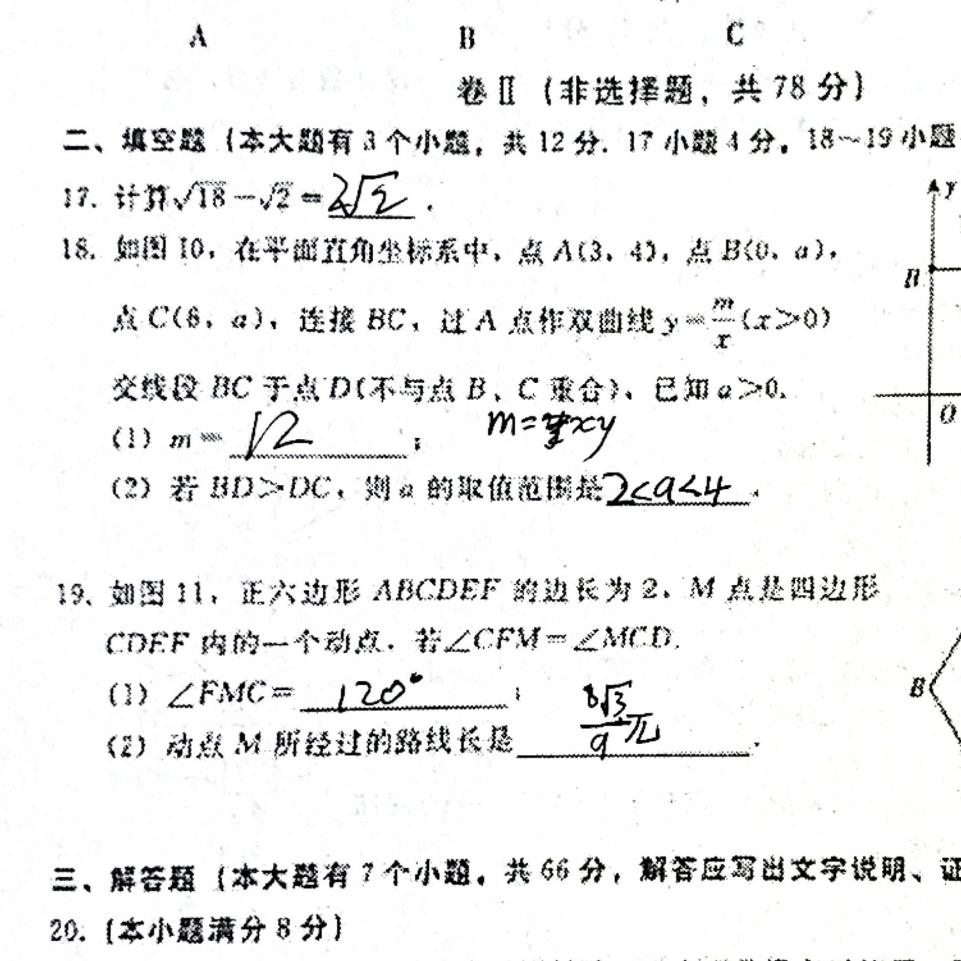 A B C
卷Ⅱ（非选择题，共78分）
二、填空题（本大题有3个小题，共12分. 17小题4分，18～19小题
17. 计算√18－√2＝2√2．
y
18. 如图10，在平面直角坐标系中，点A(3，4)，点B(0，a)，
B
点C(6，a)，连接BC，过A点作双曲线y＝m/x(x＞0)
交线段BC于点D(不与点B、C重合)，已知a＞0.
O
(1) m＝12； m=xy
(2) 若BD＞DC，则a的取值范围是2<a<4．
19. 如图11，正六边形ABCDEF的边长为2，M点是四边形
CDEF内的一个动点．若∠CFM＝∠MCD.
B
(1) ∠FMC＝120°；
(2) 动点M所经过的路线长是8√3/9π．
三、解答题（本大题有7个小题，共66分，解答应写出文字说明、证
20.（本小题满分8分）